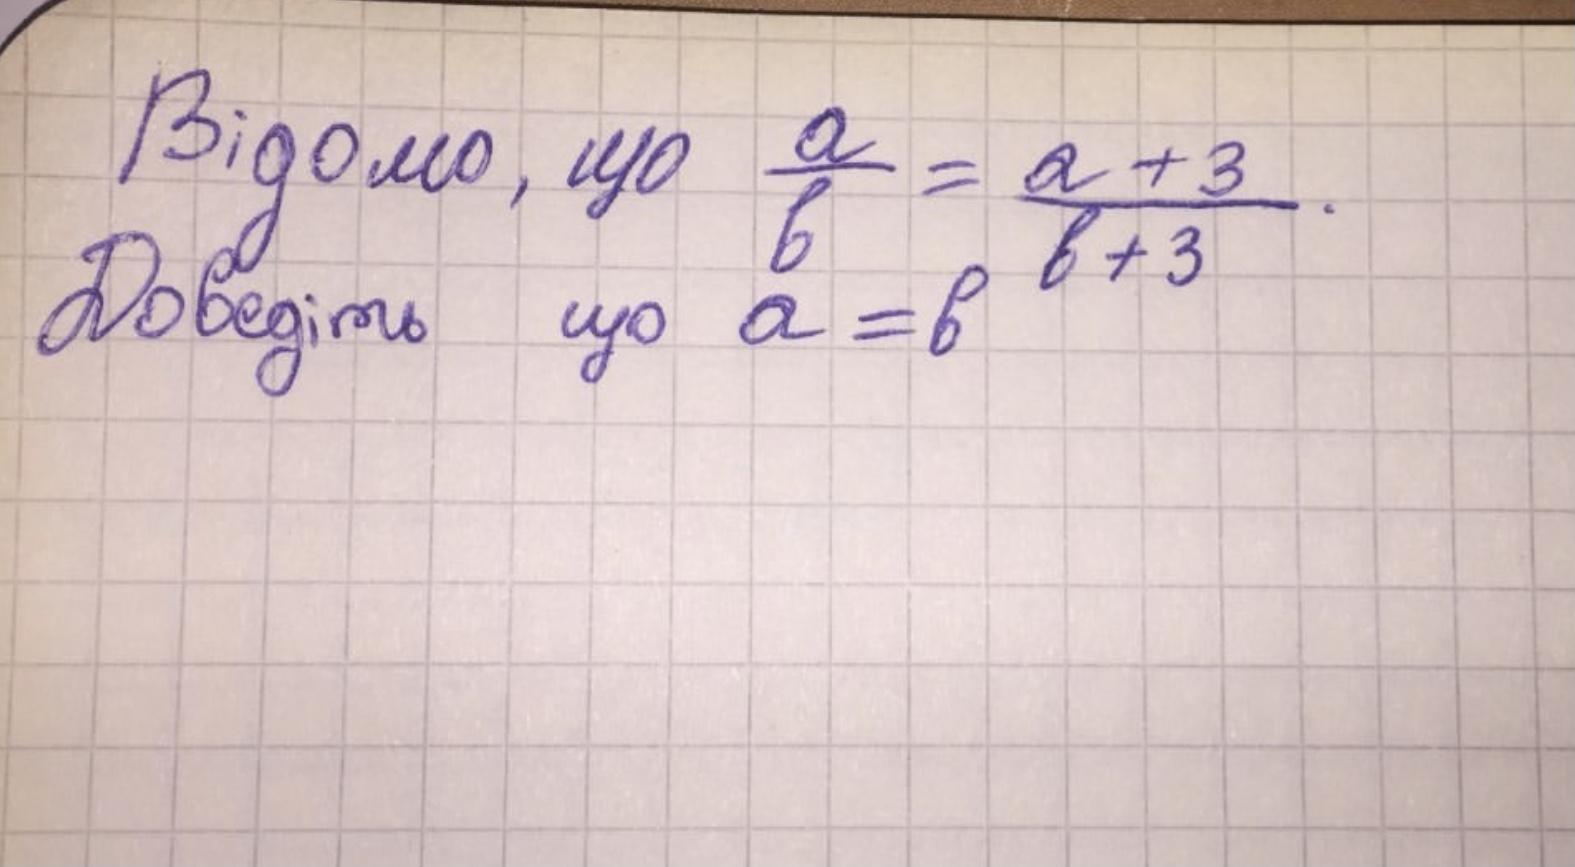 Відомо, що a/b = a+3/b+3.
Доведіть що a=b